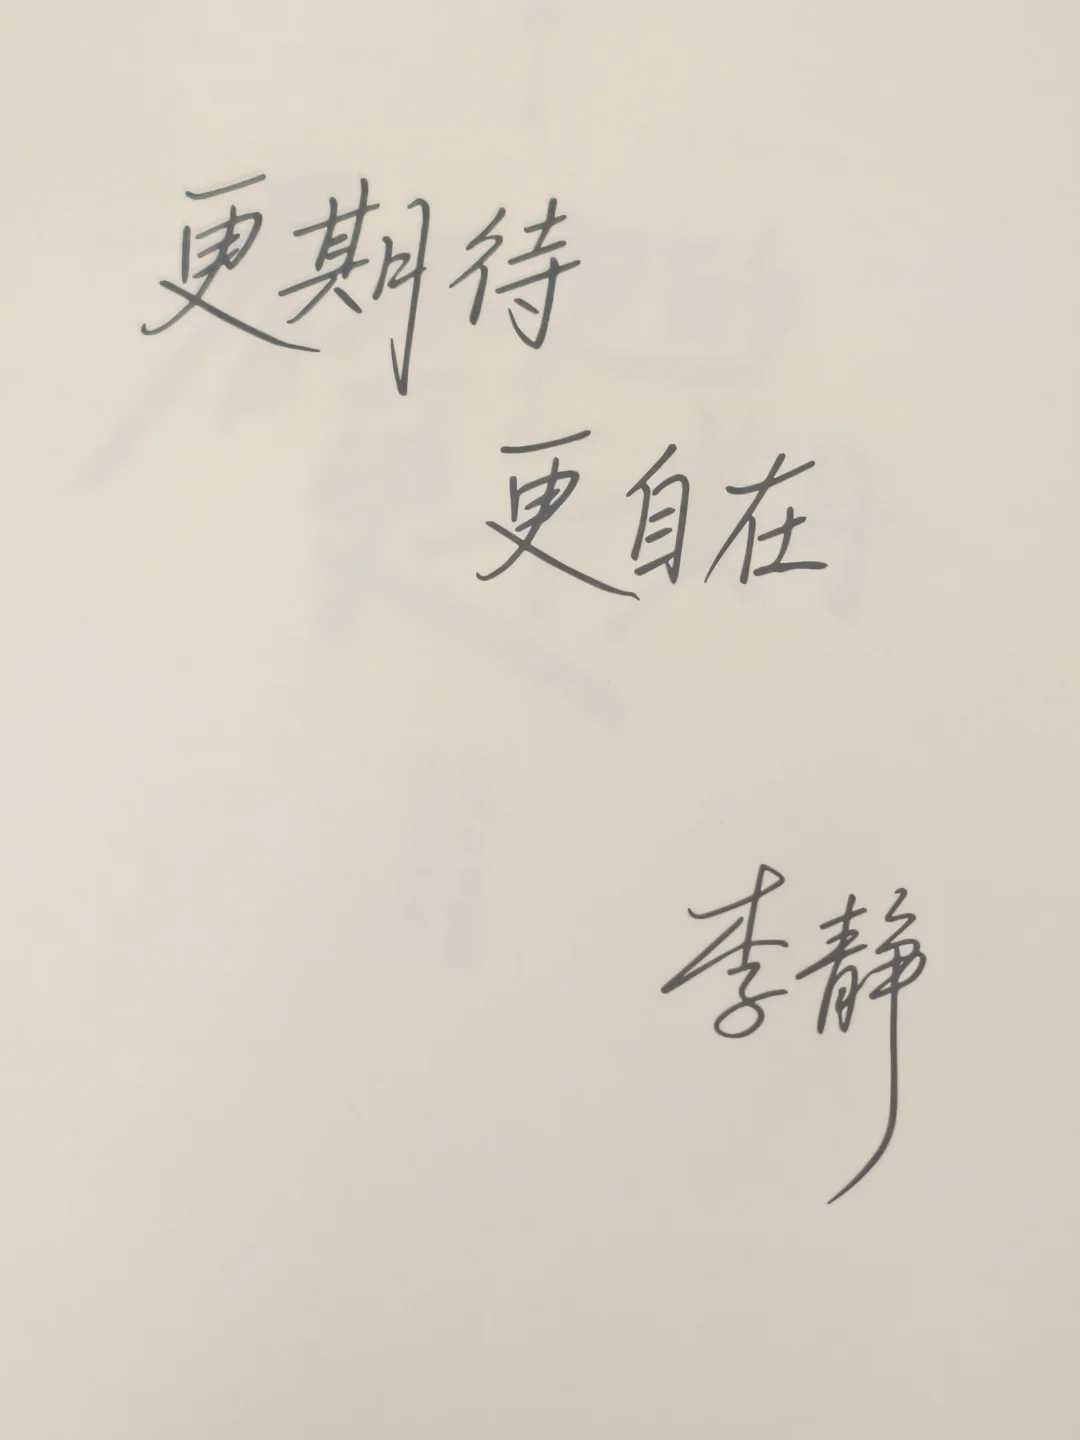 更期待
更自在
李静